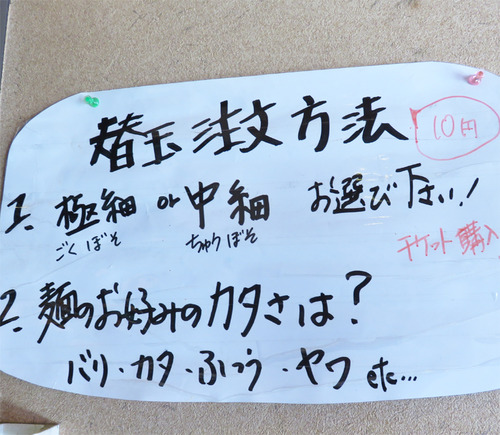 替玉注文方法
10円
1. 極細 or 中細 お選び下さい!
ごくぼそ ちゅうぼそ
チケット購入
2. 麺のお好みのカタさは?
バリ・カタ・ふつう・ヤワ etc...